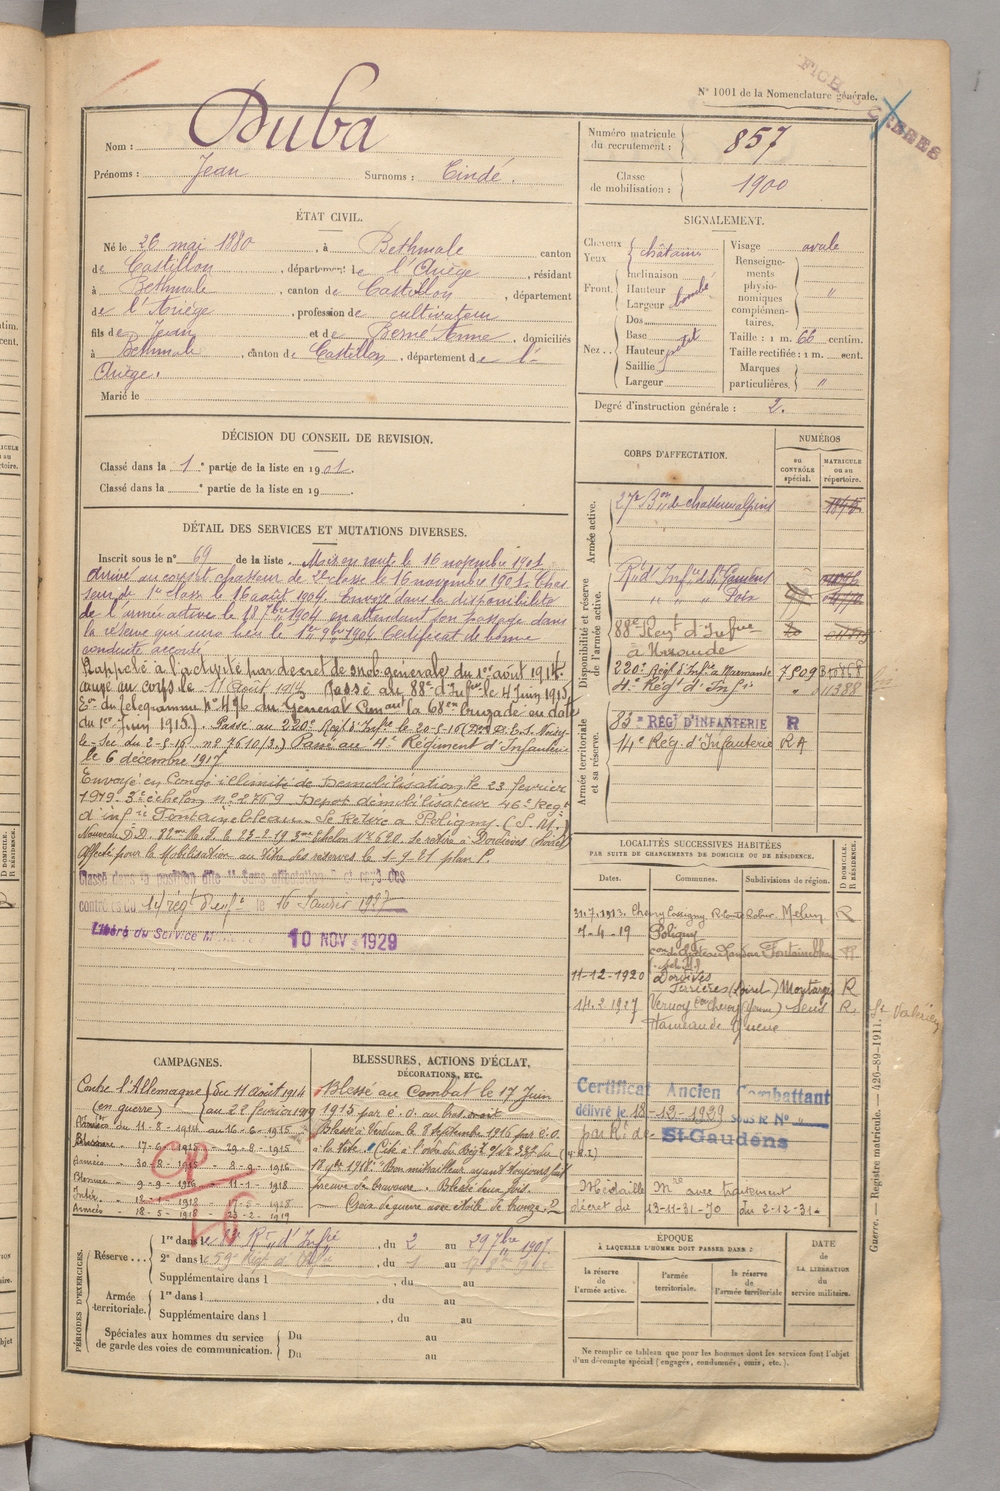 N° 1001 de la Nomenclature générale.
Nom : Duba
Prénoms : Jean Surnoms : Cindé.
Numéro matricule du recrutement : 857
Classe de mobilisation : 1900
ÉTAT CIVIL.
Né le 26 mai 1880, à Bethmale canton
de Castillon, département de l'Ariège, résidant
à Bethmale, canton de Castillon, département
de l'Ariège, profession de cultivateur
fils de Jean et de Berné Anne, domiciliés
à Bethmale, canton de Castillon, département de l'-
Ariège.
Marié le
SIGNALEMENT.
Cheveux châtains
Yeux
Front. Inclinaison
Hauteur
Largeur bombé
Nez.. Dos
Base
Hauteur petit
Saillie
Largeur
Visage ovale
Renseignements physionomiques complémentaires. "
Taille : 1 m. 66 centim.
Taille rectifiée : 1 m. cent.
Marques particulières. "
Degré d'instruction générale : 2.
DÉCISION DU CONSEIL DE REVISION.
Classé dans la 1e partie de la liste en 1901.
Classé dans la e partie de la liste en 19
DÉTAIL DES SERVICES ET MUTATIONS DIVERSES.
Inscrit sous le n° 69 de la liste. Mis en route le 16 novembre 1901.
Arrivé au corps et chasseur de 2e classe le 16 novembre 1901. Chas-
seur de 1re classe le 16 août 1904. Envoyé dans la disponibilité
de l'armée active le 18 7bre 1904 en attendant son passage dans
la réserve qui aura lieu le 1er 9bre 1904 Certificat de bonne
conduite accordé
Rappelé à l'activité par décret de mob. générale du 1er août 1914.
arrivé au corps le 11 août 1914 Passé au 88e d'Infie le 4 Juin 1915
télégramme n° 496 du Général Comant la 68e brigade en date
du 1er Juin 1915). Passé au 220e Régt d'Infie le 20-5-16
le-Sec du 2-5-16 n° 7610/2.) Passé au 4e Régiment d'Infanterie
le 6 décembre 1917
Envoyé en Congé illimité de Démobilisation le 23 février
1919. 3e échelon n° 2769 Dépôt démobilisateur 46e Regt
d'infie Fontainebleau Se Retire à Poligny (S. M.)
Nouveau D.D. 82me R.I. le 23-2-19 3me Echelon N° 620. Se retire à Dordives (Loiret)
Affecté pour la Mobilisation au titre des réserves le 1-9-21 plan P.
Classé dans la position dite "Sans affectation" et rayé des
contrôles du 14 régt d'infe le 16 Janvier 1927
Libéré du Service M 10 NOV 1929
CORPS D'AFFECTATION.
NUMÉROS
au CONTRÔLE spécial.
MATRICULE ou au répertoire.
Armée active.
27e Bon de chasseurs alpins
Disponibilité et réserve de l'armée active.
Rt d'Infie de St Gaudens
" " " Foix
88e Regt d'Infrie
à Mirande
220e Régt d'Infie à Marmande 7509
4e Rég. d'Infie " 011388
Armée territoriale et sa réserve.
83e RÉGt D'INFANTERIE R
14e Reg. d'Infanterie RA
LOCALITÉS SUCCESSIVES HABITÉES
PAR SUITE DE CHANGEMENTS DE DOMICILE OU DE RÉSIDENCE.
Dates. Communes. Subdivisions de région. D DOMICILE. R RÉSIDENCE.
31.7.1913. Chevry Cossigny Melun R
7-4-19 Poligny
con de Château Landon Fontainebleau R
11-12-1920 Dordives
Ferrières (Loiret) Montargis R
14.2.1927 Vernoy con Cheroy (Yonne) Sens R. St Valérien
Hameau de
Certificat Ancien Combattant
délivré le 18-12-1929 sous le N° "
par R! de St-Gaudens
Médaille Mre avec traitement
décret du 13-11-31-70 du 2-12-31-
CAMPAGNES.
Contre l'Allemagne du 11 août 1914
(en guerre) au 22 février 1919
Armées du 11-8-1914 au 16-6-1915
Blessure " 17-6-1915 " 29-8-1915
Armées " 30-8-1915 " 8-9-1916
Blessure " 9-9-1916 " 11-1-1918
Intér. " 12-1-1918 " 17-5-1918
Armées " 18-5-1918 " 23-2-1919
BLESSURES, ACTIONS D'ÉCLAT,
DÉCORATIONS, ETC.
Blessé au Combat le 17 Juin
1915 par é. o. au bras droit
Blessé à Verdun le 8 septembre 1916 par é.o.
à la tête. Cité à l'ordre du Régt n° 337 du
18 9bre 1918: "Bon mitrailleur ayant toujours fait
preuve de bravoure. Blessé deux fois.
Croix de guerre avec étoile de bronze.
PÉRIODES D'EXERCICES.
Réserve... 1re dans le 88e Rt d'Infie, du 2 au 29 7bre 1907
2e dans le 59e Régt d'Infie, du 1 au
Supplémentaire dans l , du au
Armée territoriale. 1re dans l , du au
Supplémentaire dans l , du au
Spéciales aux hommes du service de garde des voies de communication. Du au
Du au
ÉPOQUE
À LAQUELLE L'HOMME DOIT PASSER DANS :
la réserve de l'armée active.
l'armée territoriale.
la réserve de l'armée territoriale
DATE de LA LIBÉRATION du service militaire.
Ne remplir ce tableau que pour les hommes dont les services font l'objet
d'un décompte spécial (engagés, condamnés, omis, etc.).
Guerre. — Registre matricule. — 426-89-1911.